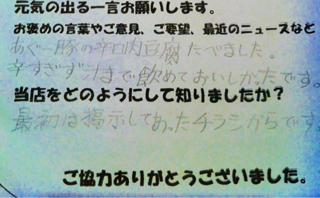 元気の出る一言お願いします。
お褒めの言葉やご意見、ご要望、最近のニュースなど
あぐー豚の辛口肉豆腐たべました。
辛すぎず汁まで飲めておいしかったです。
当店をどのようにして知りましたか？
最初は掲示してあったチラシからです。
ご協力ありがとうございました。